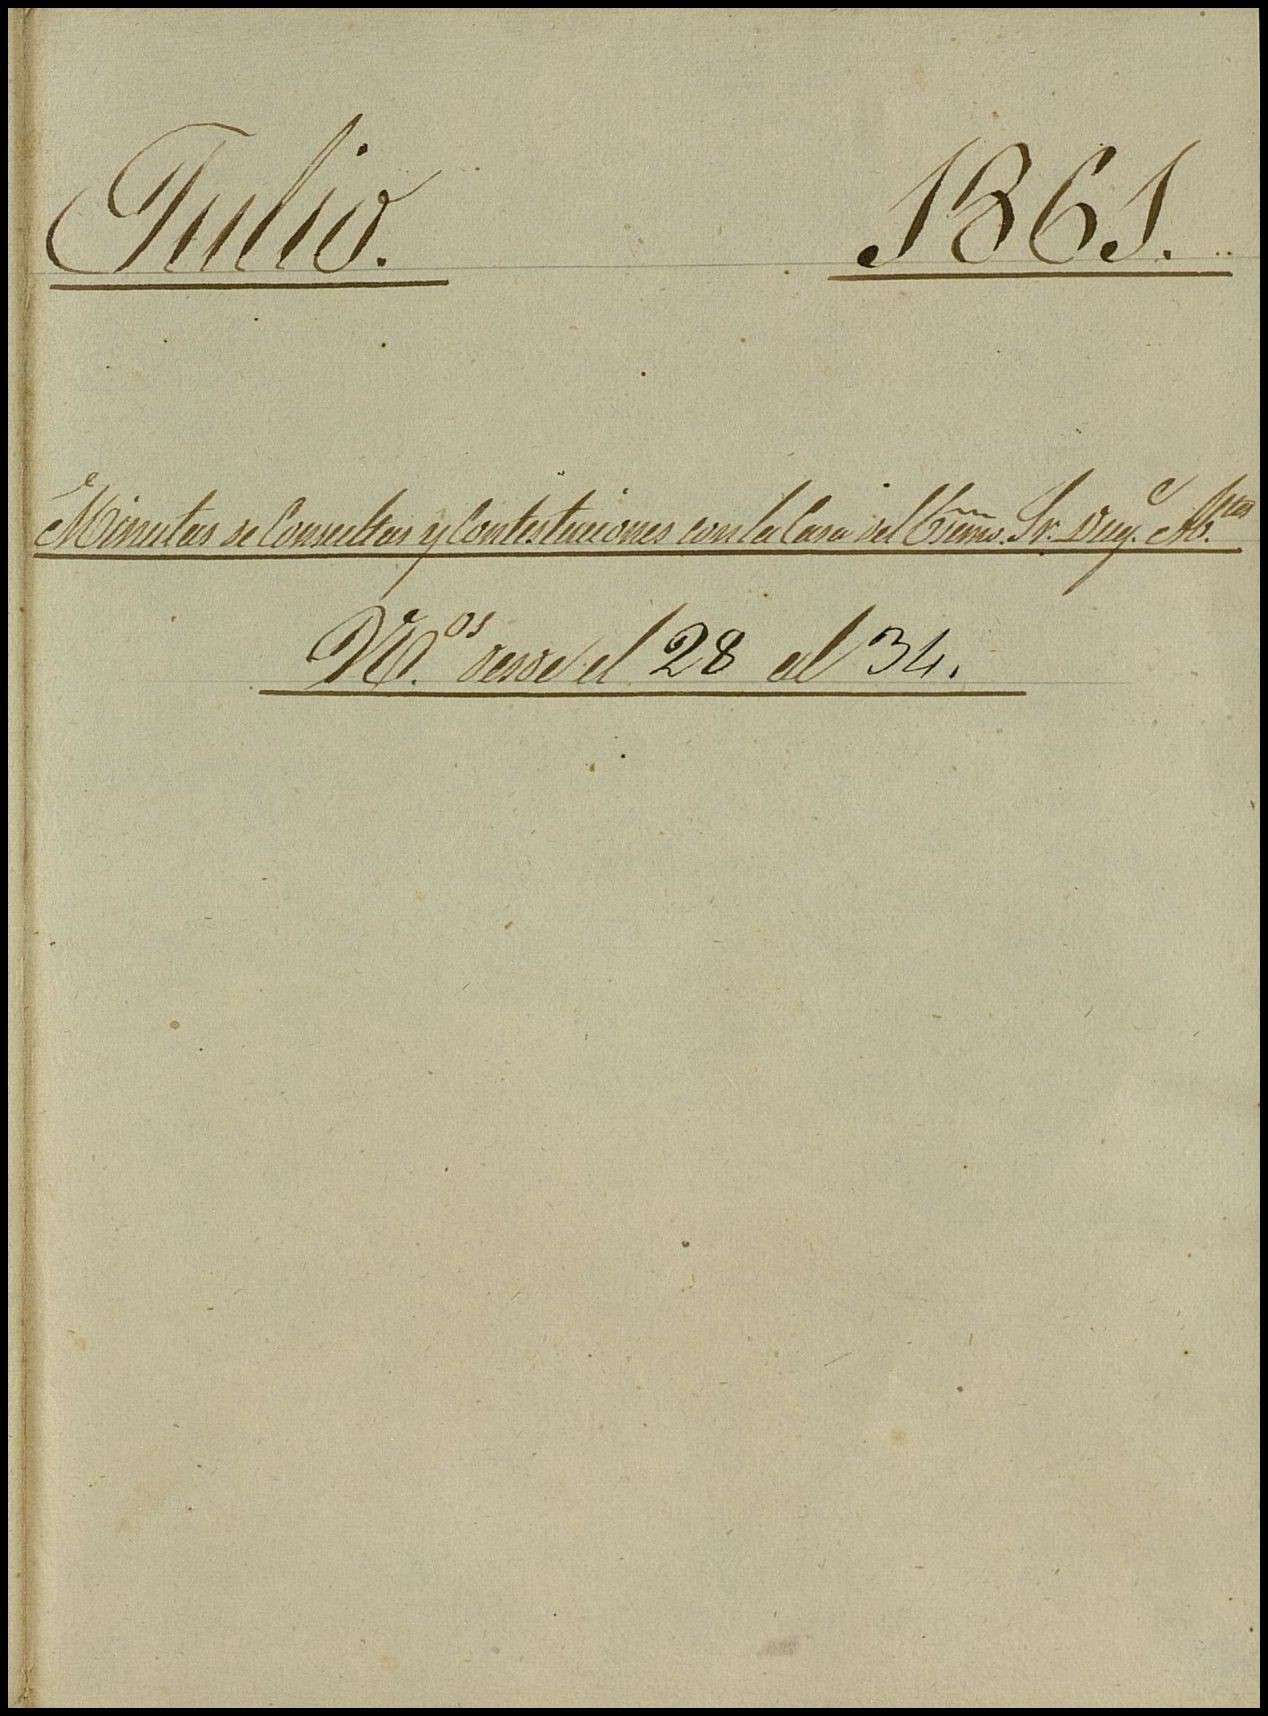 Julio. 1861.
Minutas de Consultas y Contestaciones con la Casa del Exmo. Sr. Duq.e
N.os desde el 28 al 34.